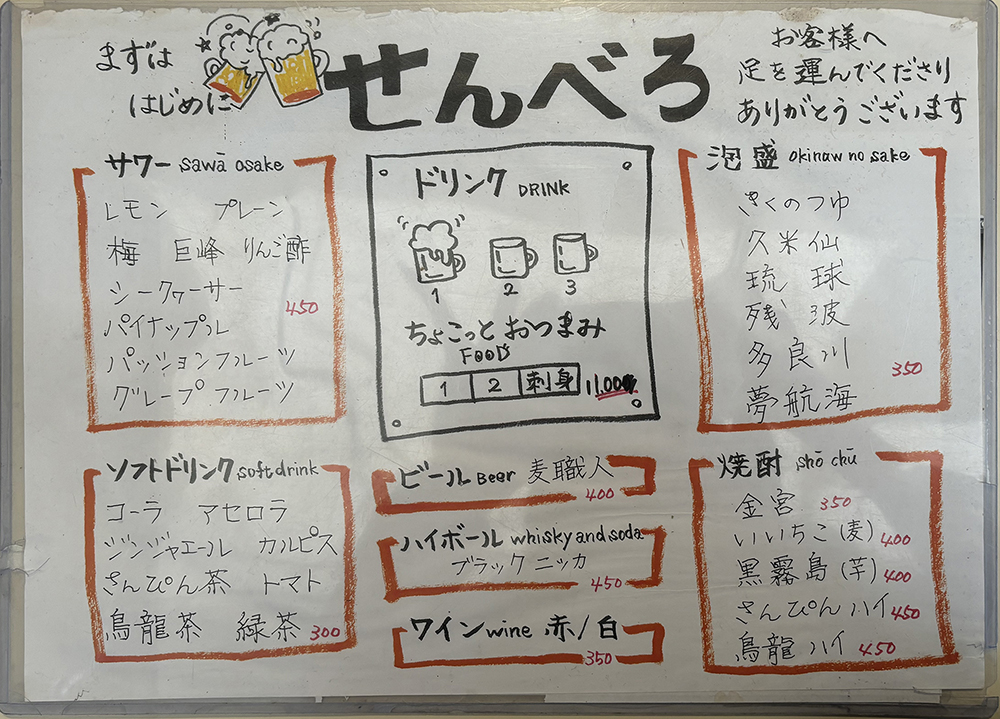 まずは
はじめに
せんべろ
お客様へ
足を運んでくださり
ありがとうございます
サワー sawā osake
レモン プレーン
梅 巨峰 りんご酢
シークヮーサー
450
パイナップル
パッションフルーツ
グレープフルーツ
ドリンク DRINK
1 2 3
ちょこっとおつまみ
FOOD
1 2 刺身
泡盛 okinaw no sake
きくのつゆ
久米仙
琉球
残波
多良川
350
夢航海
ソフトドリンク soft drink
コーラ アセロラ
ジンジャエール カルピス
さんぴん茶 トマト
烏龍茶 緑茶 300
ビール Beer 麦職人
400
ハイボール whisky and soda
ブラックニッカ
450
ワイン wine 赤/白
350
焼酎 shō chū
金宮 350
いいちこ(麦) 400
黒霧島(芋) 400
さんぴんハイ 450
烏龍ハイ 450